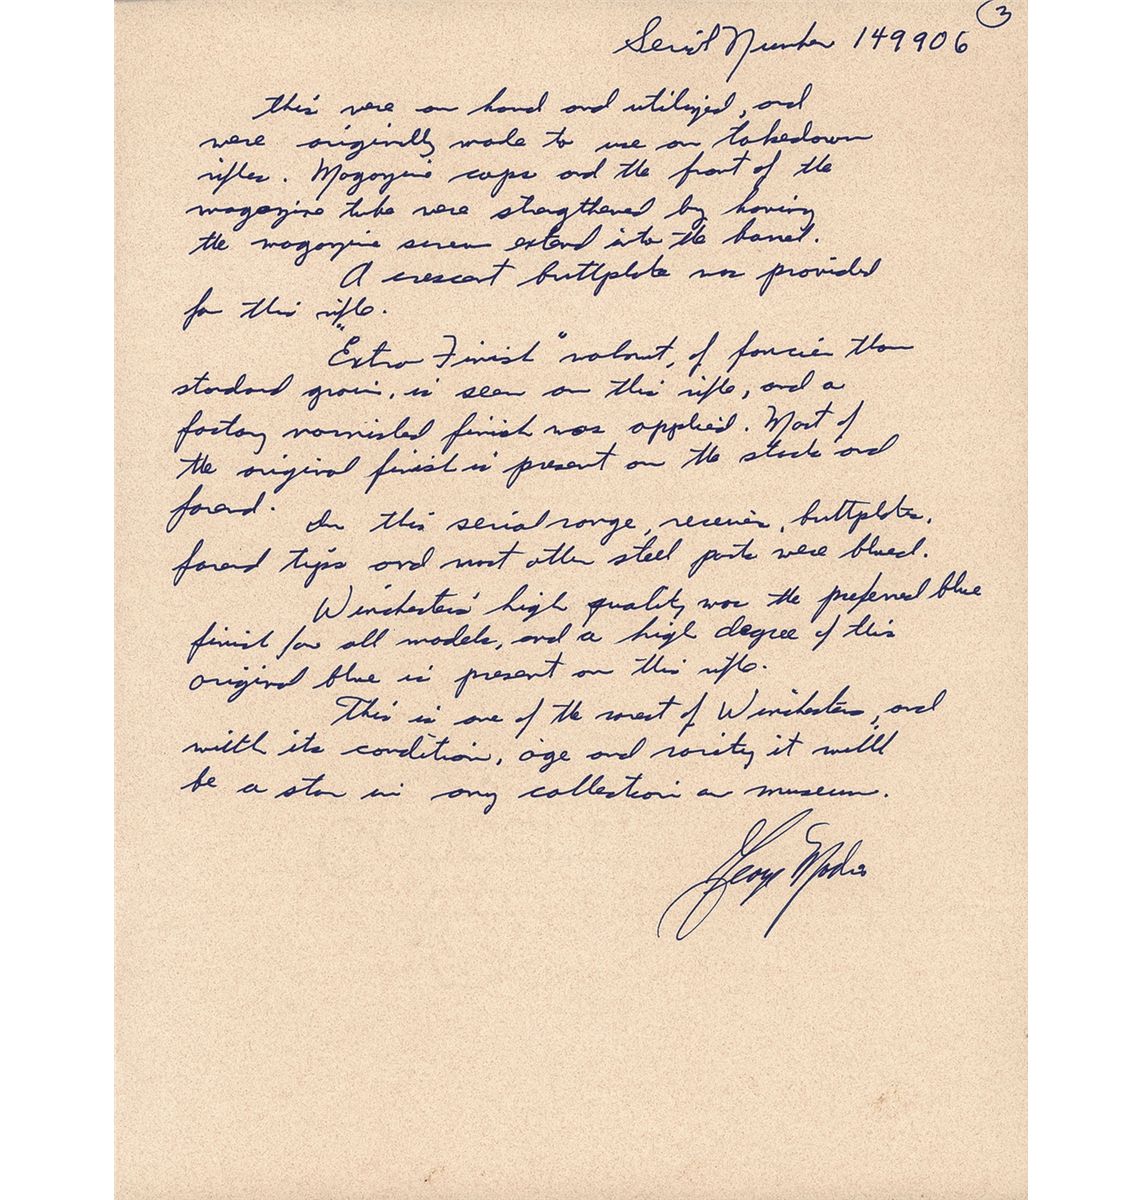 3
Serial Number 149906
this were on hand and utilized, and
were originally made to use on takedown
rifles. Magazine caps and the front of the
magazine tube were strengthened by having
the magazine screw extend into the barrel.
A crescent buttplate was provided
for this rifle.
"Extra Finish" walnut, of fancier than
standard grain, is seen on this rifle, and a
factory varnished finish was applied. Most of
the original finish is present on the stock and
forend.
In this serial range, receivers, buttplates,
forend tips and most other steel parts were blued.
Winchesters' high quality was the preferred blue
finish for all models, and a high degree of this
original blue is present on this rifle.
This is one of the rarest of Winchesters, and
with its condition, age and rarity it will
be a star in any collection or museum.
George Madis